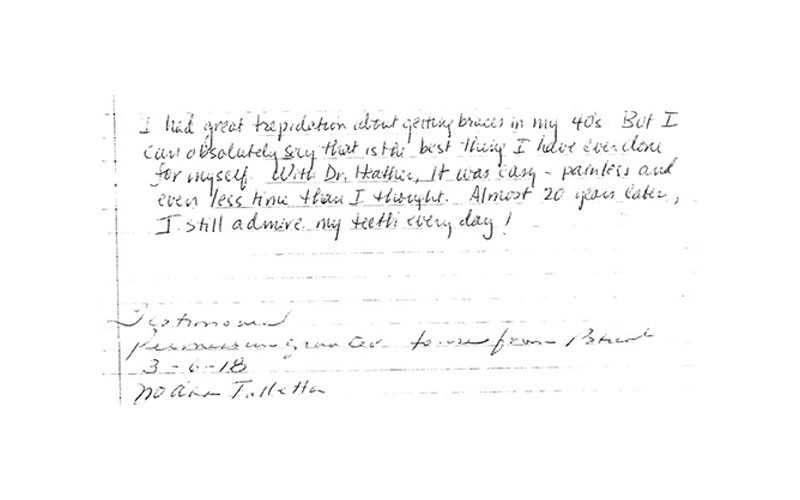 I had great trepidation about getting braces in my 40's But I
can absolutely say that is the best thing I have ever done
for myself. With Dr. Heather, it was easy - painless and
even less time than I thought. Almost 20 years later,
I still admire my teeth every day!
Testimonial
Permission granted to use from Patient
3-6-18